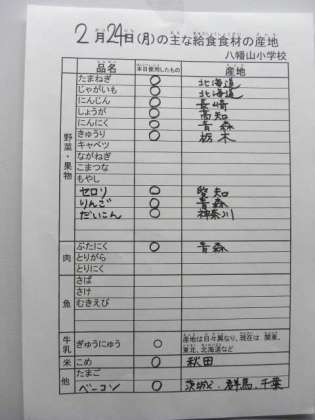 2月24日(月)の主な給食食材の産地
八幡山小学校
品名 本日使用したもの 産地
野菜・果物
たまねぎ ○ 北海道
じゃがいも ○ 北海道
にんじん ○ 長崎
しょうが ○ 高知
にんにく ○ 青森
きゅうり ○ 栃木
キャベツ
ながねぎ
こまつな
もやし
セロリ ○ 愛知
りんご ○ 青森
だいこん ○ 神奈川
肉
ぶたにく ○ 青森
とりがら
とりにく
魚
さば
さけ
むきえび
牛乳 ぎゅうにゅう ○ 産地は日々異なり、現在は 関東、
東北、北海道など
米 こめ ○ 秋田
他
たまご
ベーコン ○ 茨城・群馬・千葉